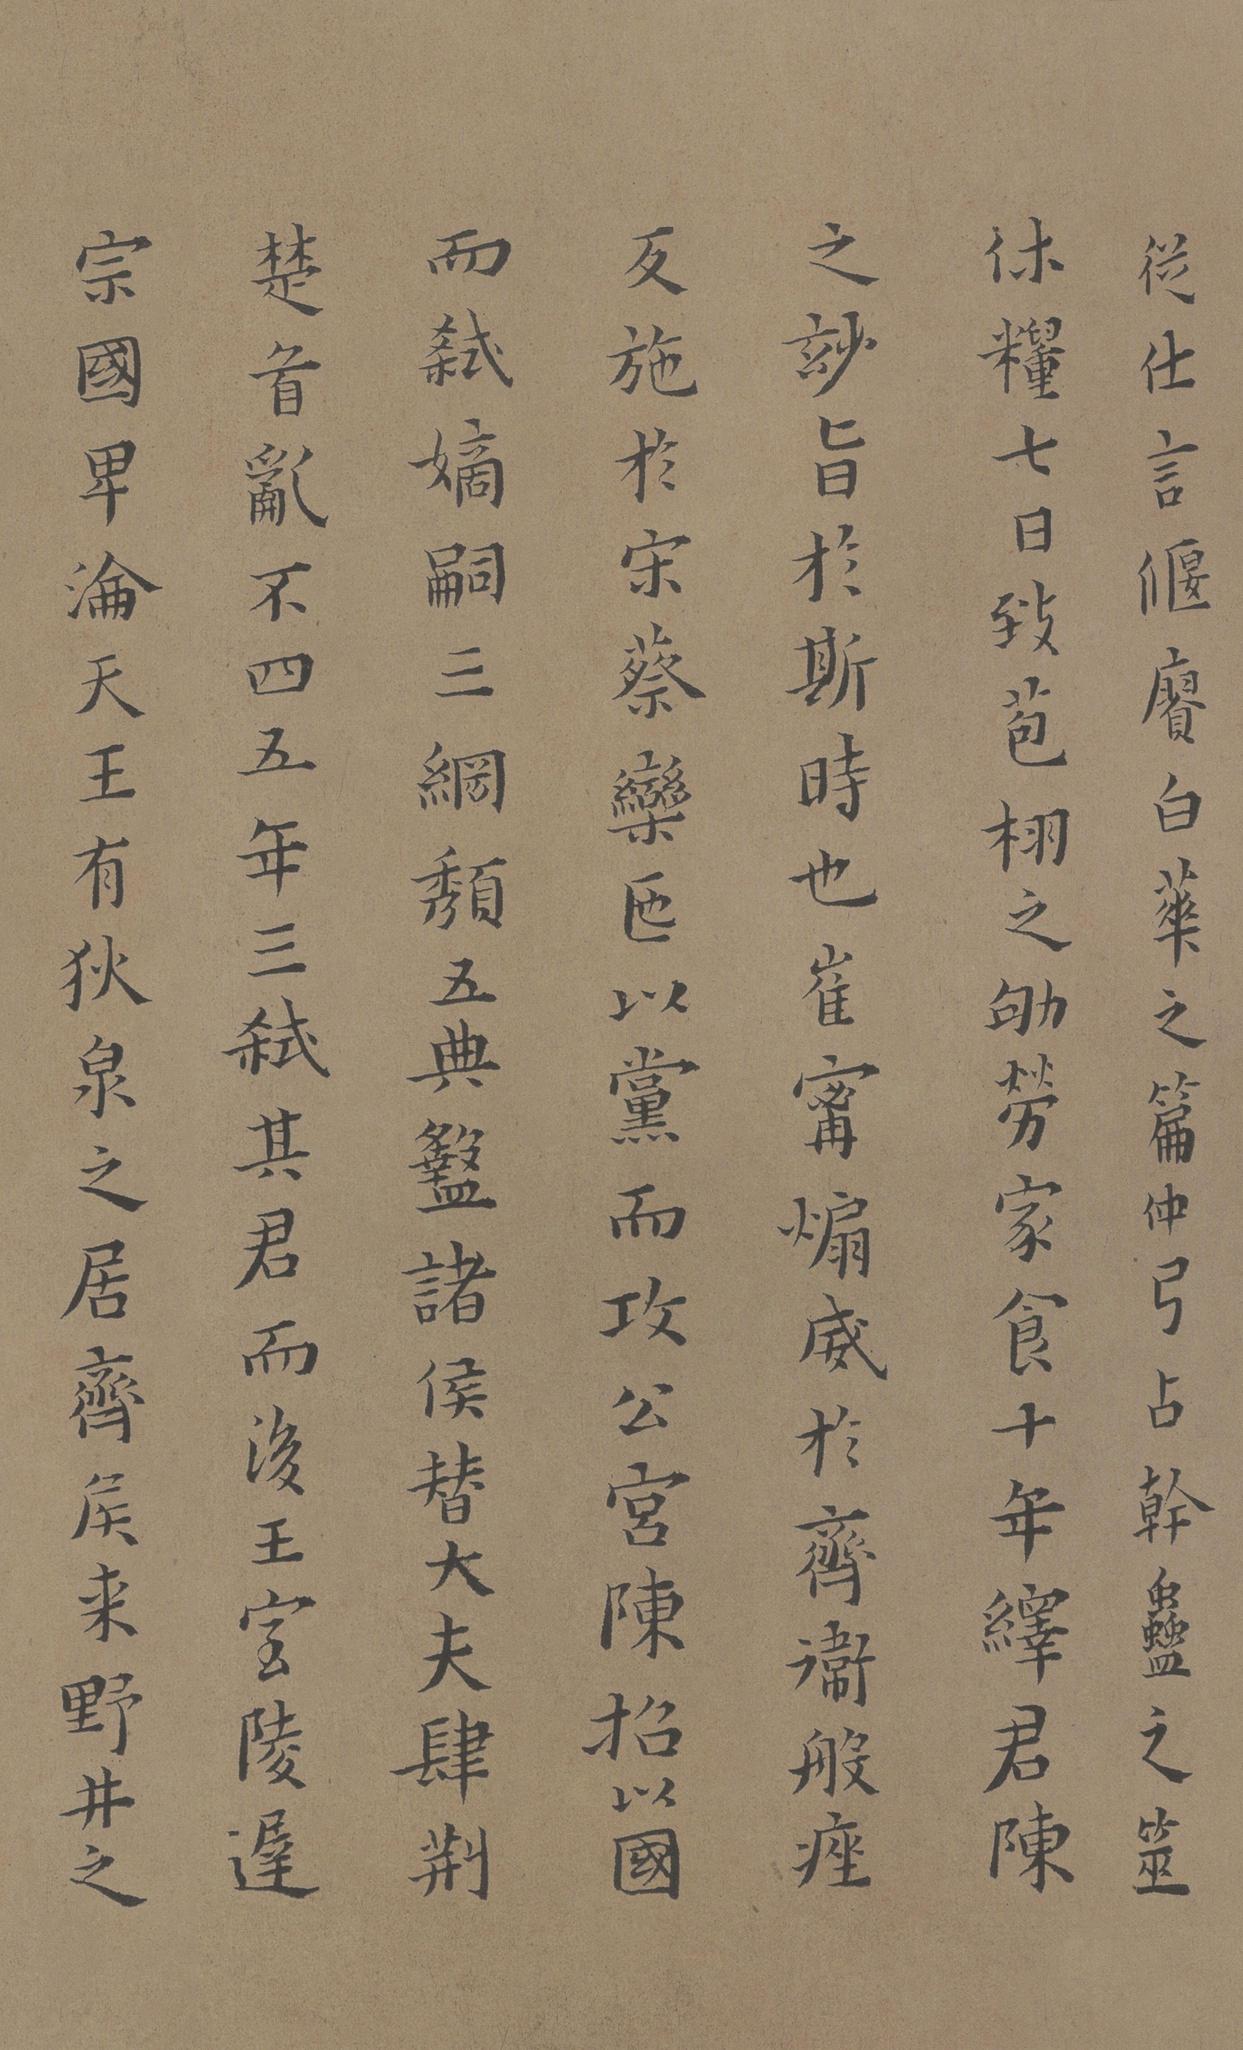 從仕言偃賡白華之篇仲弓占幹蠱之筮
休糧七日致苞栩之劬勞家食十年繹君陳
之玅旨於斯時也崔甯煽威於齊衞般痤
反施於宋蔡欒𠤷以黨而攻公宮陳招以國
而弒嫡嗣三綱頽五典盭諸侯替大夫肆荆
楚首亂不四五年三弒其君而後王室陵遲
宗國卑淪天王有狄泉之居齊侯来野井之